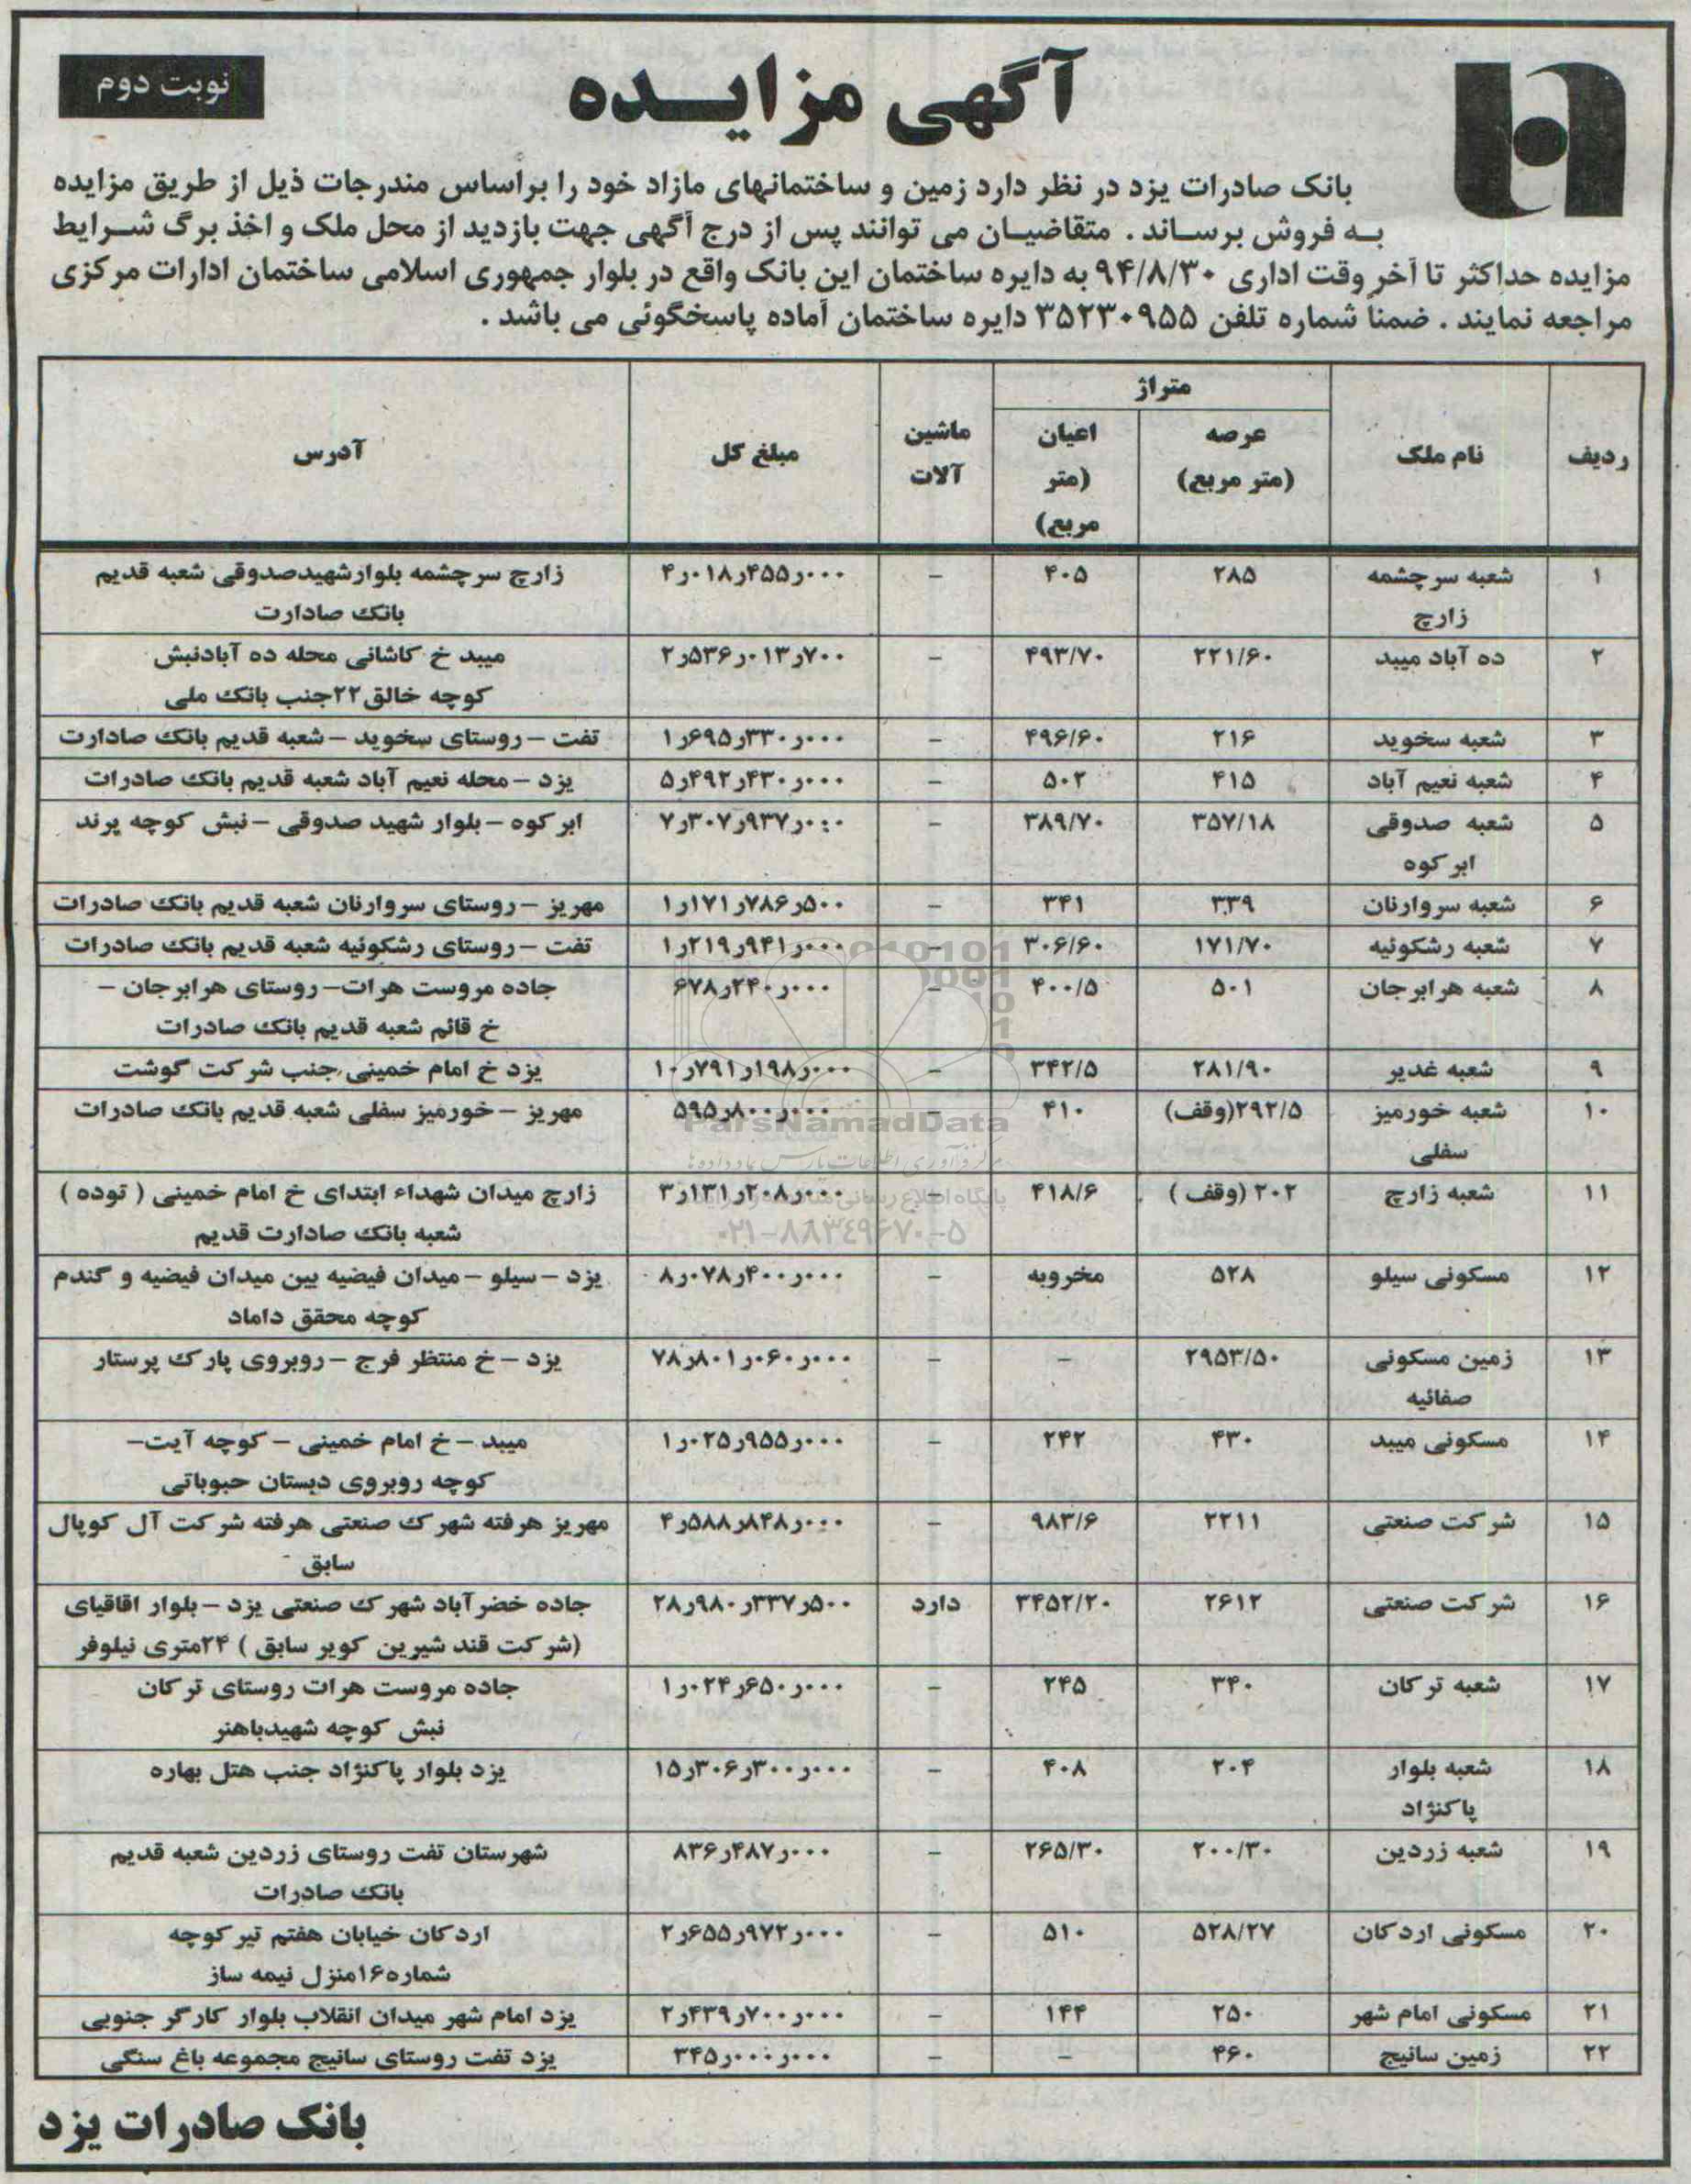 نوبت دوم
آگهی مزایـــده
بانک صادرات یزد در نظر دارد زمین و ساختمانهای مازاد خود را براساس مندرجات ذیل از طریق مزایده
بــه فروش برســاند . متقاضیــان می توانند پس از درج آگهی جهت بازدید از محل ملک و اخذ برگ شــرایط
مزایده حداکثر تا آخر وقت اداری ۹۴/۸/۳۰ به دایره ساختمان این بانک واقع در بلوار جمهوری اسلامی ساختمان ادارات مرکزی
مراجعه نمایند . ضمناً شماره تلفن ۳۵۲۳۰۹۵۵ دایره ساختمان آماده پاسخگوئی می باشد .
ردیف | نام ملک | متراژ | عرصه (متر مربع) | اعیان (متر مربع) | ماشین آلات | مبلغ کل | آدرس
۱ | شعبه سرچشمه | ۲۸۵ | ۴۰۵ | – | ۴٫۰۱۸٫۴۵۵٫۰۰۰ | زارچ سرچشمه بلوارشهیدصدوقی شعبه قدیم
زارچ | بانک صادارت
۲ | ده آباد میبد | ۲۲۱/۶۰ | ۴۹۳/۷۰ | – | ۲٫۵۳۶٫۰۱۳٫۷۰۰ | میبد خ کاشانی محله ده آبادنبش
کوچه خالق۲۲جنب بانک ملی
۳ | شعبه سخوید | ۲۱۶ | ۴۹۶/۶۰ | – | ۱٫۶۹۵٫۳۳۰٫۰۰۰ | تفت –روستای سخوید –شعبه قدیم بانک صادارت
۴ | شعبه نعیم آباد | ۴۱۵ | ۵۰۲ | – | ۵٫۴۹۲٫۴۳۰٫۰۰۰ | یزد –محله نعیم آباد شعبه قدیم بانک صادرات
۵ | شعبه صدوقی | ۳۵۷/۱۸ | ۳۸۹/۷۰ | – | ۷٫۳۰۷٫۹۳۷٫۰۰۰ | ابرکوه –بلوار شهید صدوقی –نبش کوچه پرند
ابرکوه
۶ | شعبه سروارنان | ۳۳۹ | ۳۴۱ | – | ۱٫۱۷۱٫۷۸۶٫۵۰۰ | مهریز –روستای سروارنان شعبه قدیم بانک صادرات
۷ | شعبه رشکوئیه | ۱۷۱/۷۰ | ۳۰۶/۶۰ | – | ۱٫۲۱۹٫۹۴۱٫۰۰۰ | تفت –روستای رشکوئیه شعبه قدیم بانک صادرات
۸ | شعبه هرابرجان | ۵۰۱ | ۴۰۰/۵ | – | ۶۷۸٫۲۴۰٫۰۰۰ | جاده مروست هرات–روستای هرابرجان –
خ قائم شعبه قدیم بانک صادرات
۹ | شعبه غدیر | ۲۸۱/۹۰ | ۳۴۲/۵ | – | ۱۰٫۷۹۱٫۱۹۸٫۰۰۰ | یزد خ امام خمینی جنب شرکت گوشت
۱۰ | شعبه خورمیز | ۲۹۲/۵(وقف) | ۴۱۰ | – | ۵۹۵٫۸۰۰٫۰۰۰ | مهریز –خورمیز سفلی شعبه قدیم بانک صادرات
سفلی
۱۱ | شعبه زارچ | ۲۰۲ (وقف ) | ۴۱۸/۶ | – | ۳٫۱۳۱٫۲۰۸٫۰۰۰ | زارچ میدان شهداء ابتدای خ امام خمینی ( توده )
شعبه بانک صادارت قدیم
۱۲ | مسکونی سیلو | ۵۲۸ | مخروبه | – | ۸٫۰۷۸٫۴۰۰٫۰۰۰ | یزد –سیلو –میدان فیضیه بین میدان فیضیه و گندم
کوچه محقق داماد
۱۳ | زمین مسکونی | ۲۹۵۳/۵۰ | – | – | ۷۸٫۸۰۱٫۰۶۰٫۰۰۰ | یزد –خ منتظر فرج –روبروی پارک پرستار
صفائیه
۱۴ | مسکونی میبد | ۴۳۰ | ۲۴۲ | – | ۱٫۰۲۵٫۹۵۵٫۰۰۰ | میبد –خ امام خمینی –کوچه آیت–
کوچه روبروی دبستان حبوباتی
۱۵ | شرکت صنعتی | ۲۲۱۱ | ۹۸۳/۶ | – | ۴٫۵۸۸٫۸۴۸٫۰۰۰ | مهریز هرفته شهرک صنعتی هرفته شرکت آل کوپال
سابق
۱۶ | شرکت صنعتی | ۲۶۱۲ | ۳۴۵۲/۲۰ | دارد | ۲۸٫۹۸۰٫۳۳۷٫۵۰۰ | جاده خضرآباد شهرک صنعتی یزد –بلوار اقاقیای
(شرکت قند شیرین کویر سابق ) ۲۴متری نیلوفر
۱۷ | شعبه ترکان | ۳۴۰ | ۲۴۵ | – | ۱٫۰۲۴٫۶۵۰٫۰۰۰ | جاده مروست هرات روستای ترکان
نبش کوچه شهیدباهنر
۱۸ | شعبه بلوار | ۲۰۴ | ۴۰۸ | – | ۱۵٫۳۰۶٫۳۰۰٫۰۰۰ | یزد بلوار پاکنژاد جنب هتل بهاره
پاکنژاد
۱۹ | شعبه زردین | ۲۰۰/۳۰ | ۲۶۵/۳۰ | – | ۸۳۶٫۴۸۷٫۰۰۰ | شهرستان تفت روستای زردین شعبه قدیم
بانک صادرات
۲۰ | مسکونی اردکان | ۵۲۸/۲۷ | ۵۱۰ | – | ۲٫۶۵۵٫۹۷۲٫۰۰۰ | اردکان خیابان هفتم تیر کوچه
شماره۱۶منزل نیمه ساز
۲۱ | مسکونی امام شهر | ۲۵۰ | ۱۴۴ | – | ۲٫۴۳۹٫۷۰۰٫۰۰۰ | یزد امام شهر میدان انقلاب بلوار کارگر جنوبی
۲۲ | زمین سانیج | ۴۶۰ | – | – | ۳۴۵٫۰۰۰٫۰۰۰ | یزد تفت روستای سانیج مجموعه باغ سنگی
بانک صادرات یزد
ParsNamadData
۰۲۱-۸۸۳۴۹۶۷۰-۵